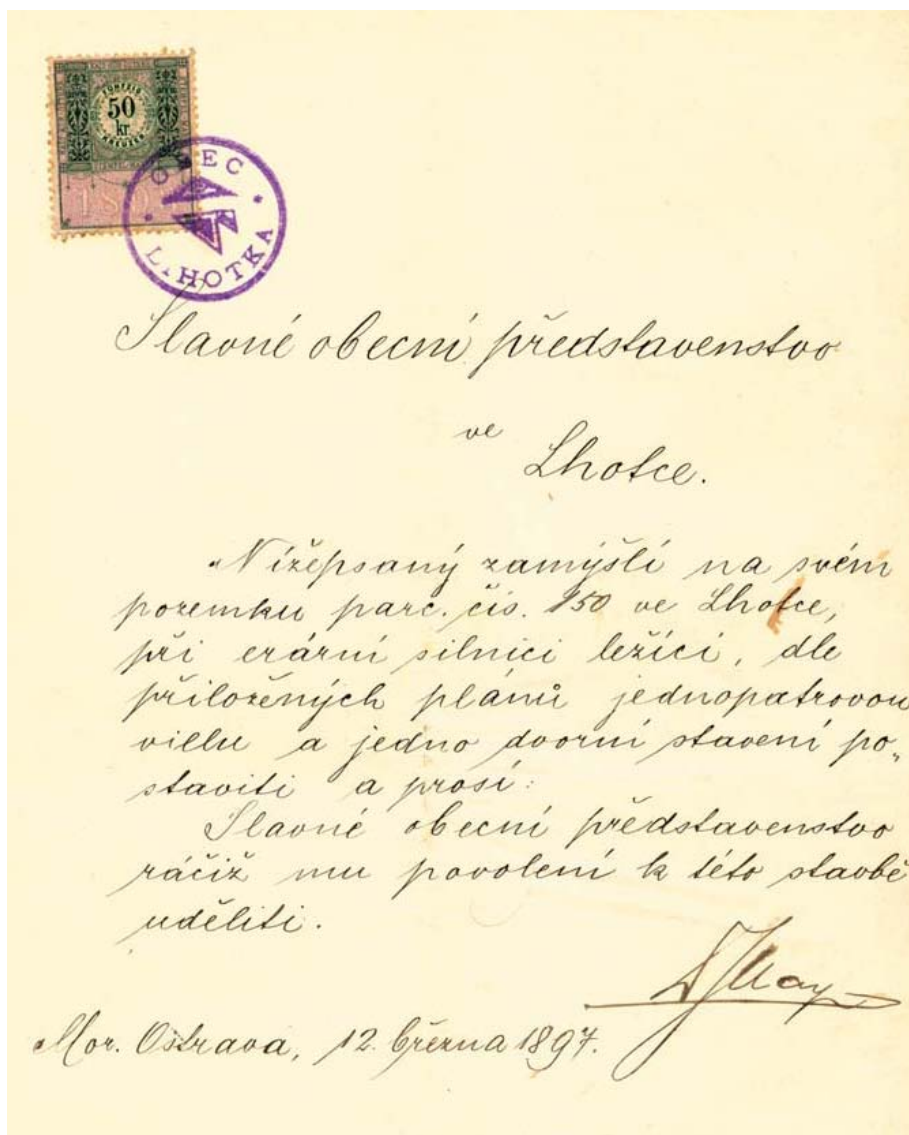 FÜNFZIG
50
kr.
KREUZER
OBEC
LHOTKA
Slavné obecní představenstvo
ve
Lhotce.
Nížepsaný zamýšlí na svém
pozemku parc. čís. 150 ve Lhotce,
při erární silnici ležící, dle
přiložených plánů jednopatrovou
villu a jedno dvorní stavení po„
staviti a prosí:
Slavné obecní představenstvo
ráčiž mu povolení k této stavbě
uděliti.
Mor. Ostrava, 12. března 1897.